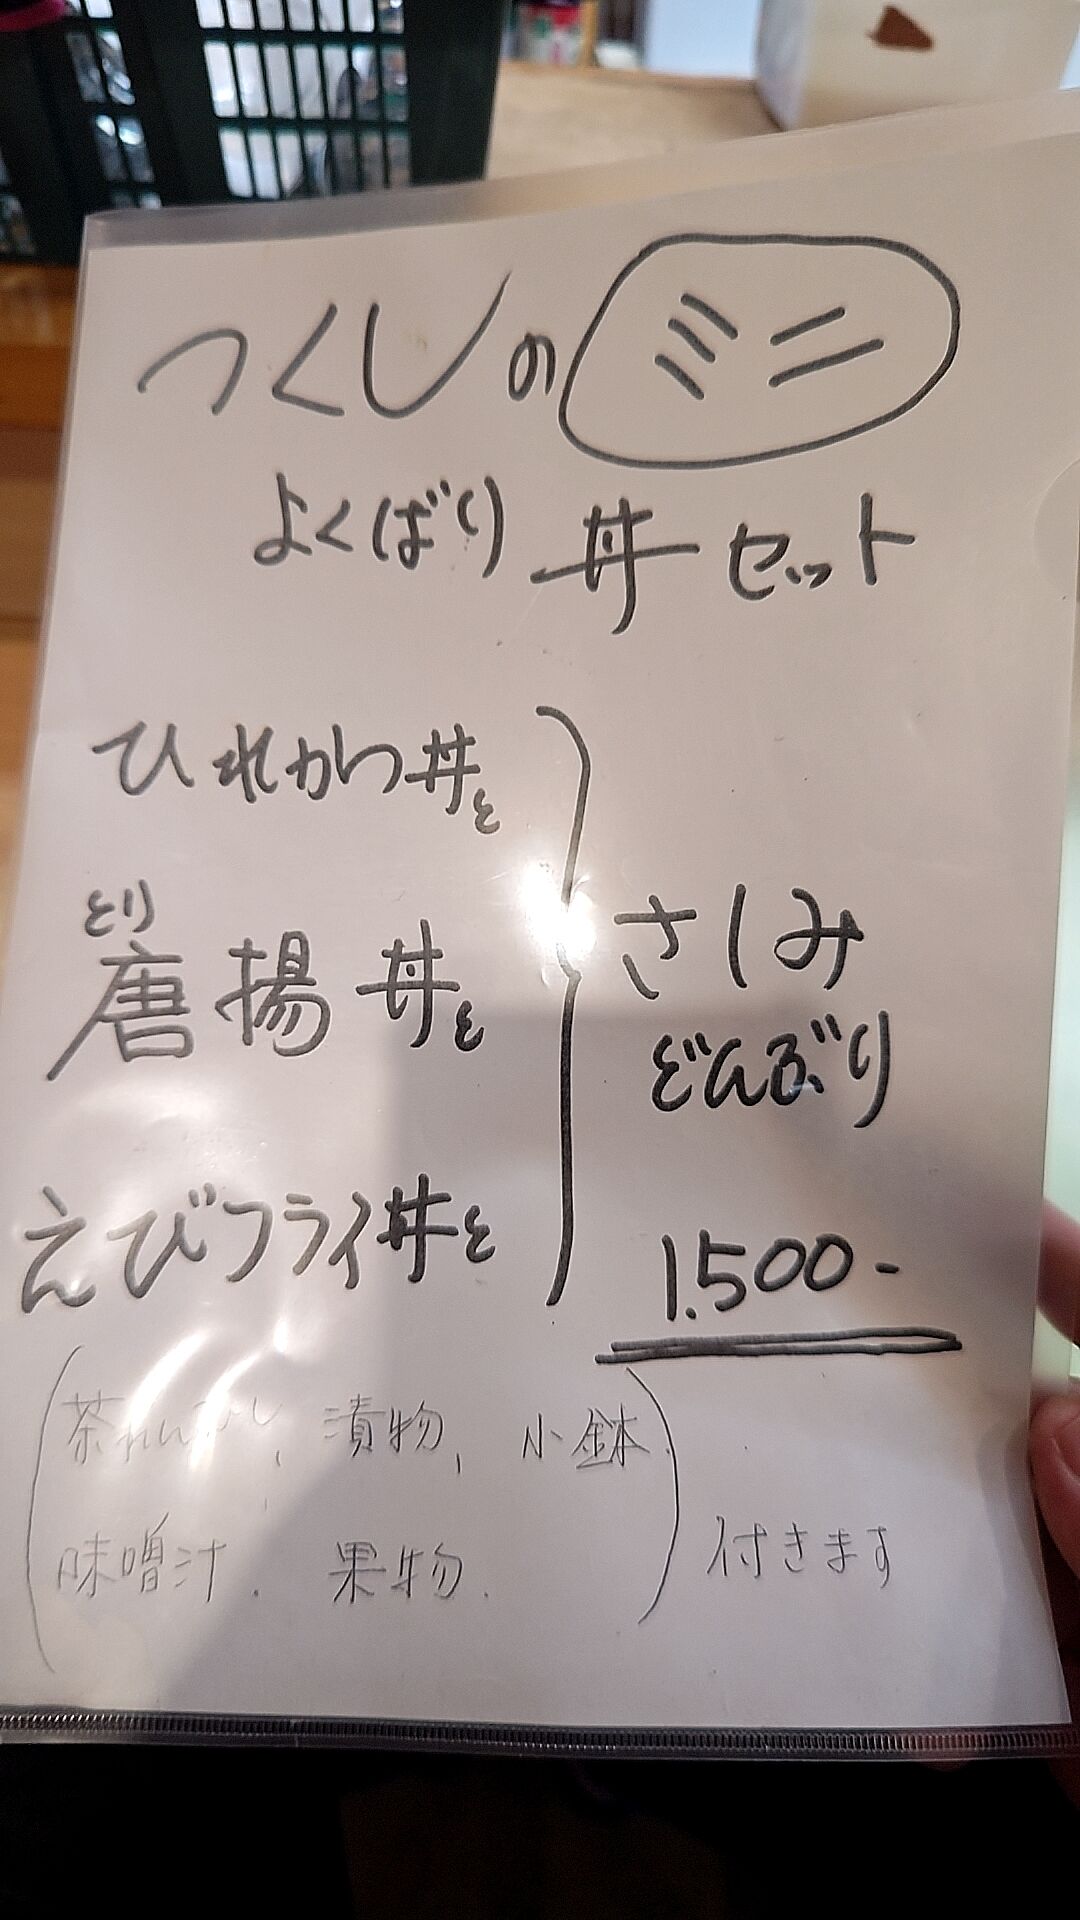 つくしのミニ
よくばり丼セット
ひれかつ丼と
とり
唐揚丼と
えびフライ丼と
さしみ
どんぶり
1.500-
茶わんむし, 漬物, 小鉢.
味噌汁. 果物.
付きます